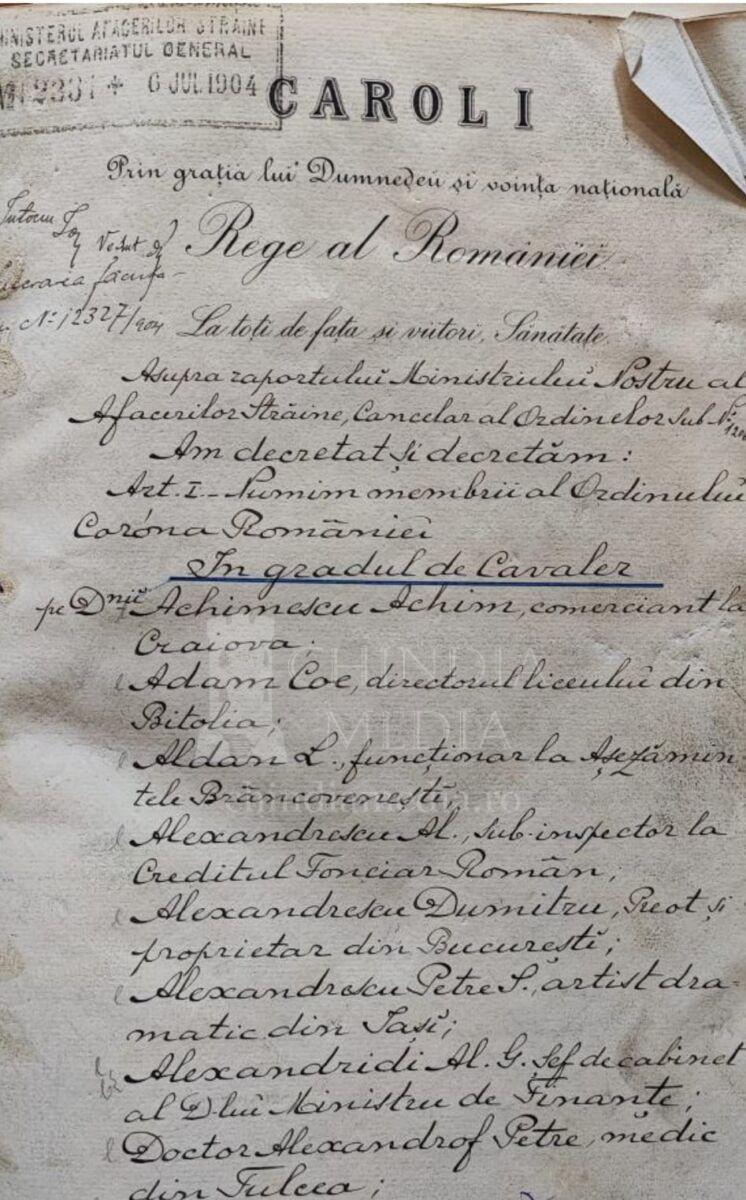 MINISTERUL AFACERILOR STRĂINE
SECRETARIATUL GENERAL
6 JUL 1904
CAROL I
Prin grația lui Dumnedeu și voința națională
Rege al României
Vedut
No 12327/904
La toți de față și viitori, Sănătate.
Asupra raportului Ministrului Nostru al
Afacerilor Străine, Cancelar al Ordinelor sub No
Am decretat și decretăm:
Art. I - Numim membrii al Ordinului
Coróna României
In gradul de Cavaler
pe Dnii Achimescu Achim, comerciant la
Craiova;
Adam Coe, directorul liceului din
Bitolia;
Aldan L., funcționar la Așezămin-
tele Brâncovenești;
Alexandrescu Al., sub-inspector la
Creditul Fonciar Român;
Alexandrescu Dumitru, Preot și
proprietar din București;
Alexandrescu Petre S., artist dra-
matic din Iași;
Alexandridi Al. G. Șef de cabinet
al D-lui Ministru de Finanțe;
Doctor Alexandrof Petre, medic
din Tulcea;
CHINDIA
MEDIA
chindiamedia.ro